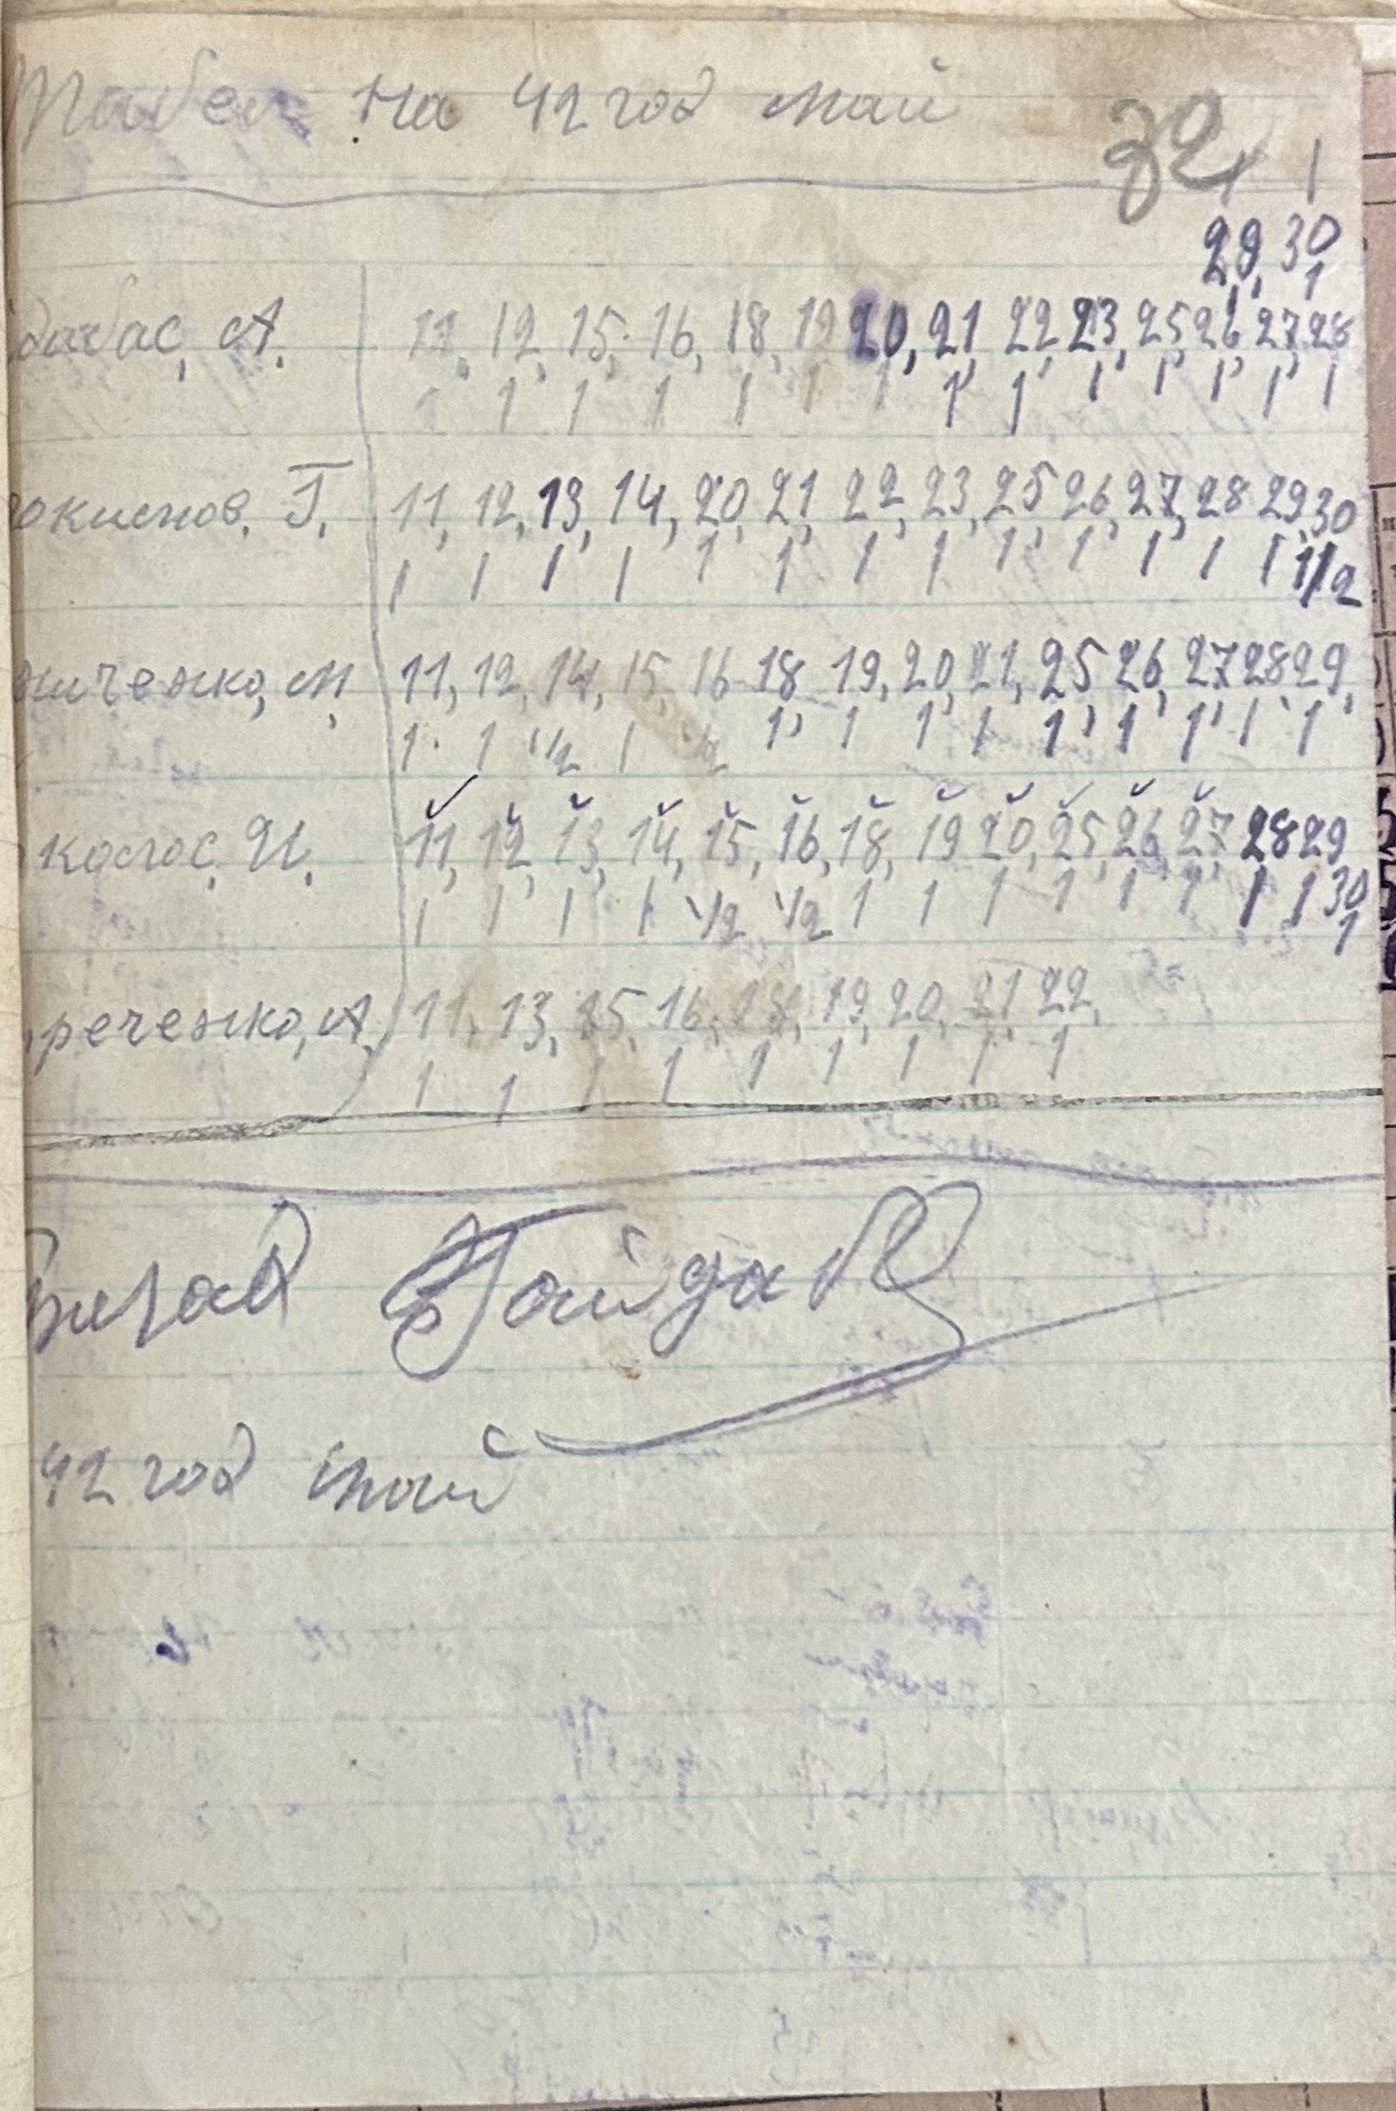 Табель на 42 год май
32
1 1
29, 30
1 1
дабас, А. 11, 12, 15, 16, 18, 19 20, 21, 22, 23, 25, 26, 27, 28
1 1 1 1 1 1 1 1 1 1 1 1 1 1
окиснов, Г. 11, 12, 13, 14, 20, 21, 22, 23, 25, 26, 27, 28 29, 30
1 1 1 1 1 1 1 1 1 1 1 1 1 1/2
ниченко, М, 11, 12, 14, 15, 16 18, 19, 20, 21, 25, 26, 27 28, 29,
1 1 1/2 1 1/2 1 1 1 1 1 1 1 1 1
колос, И. 11, 12, 13, 14, 15, 16, 18, 19 20, 25, 26 27, 28 29,
1 1 1 1 1/2 1/2 1 1 1 1 1 1 1 1 30
1
реченко, А, 11, 13, 15, 16, 18, 19, 20, 21, 22,
1 1 1 1 1 1 1 1 1
Бригад Гайда
42 год май